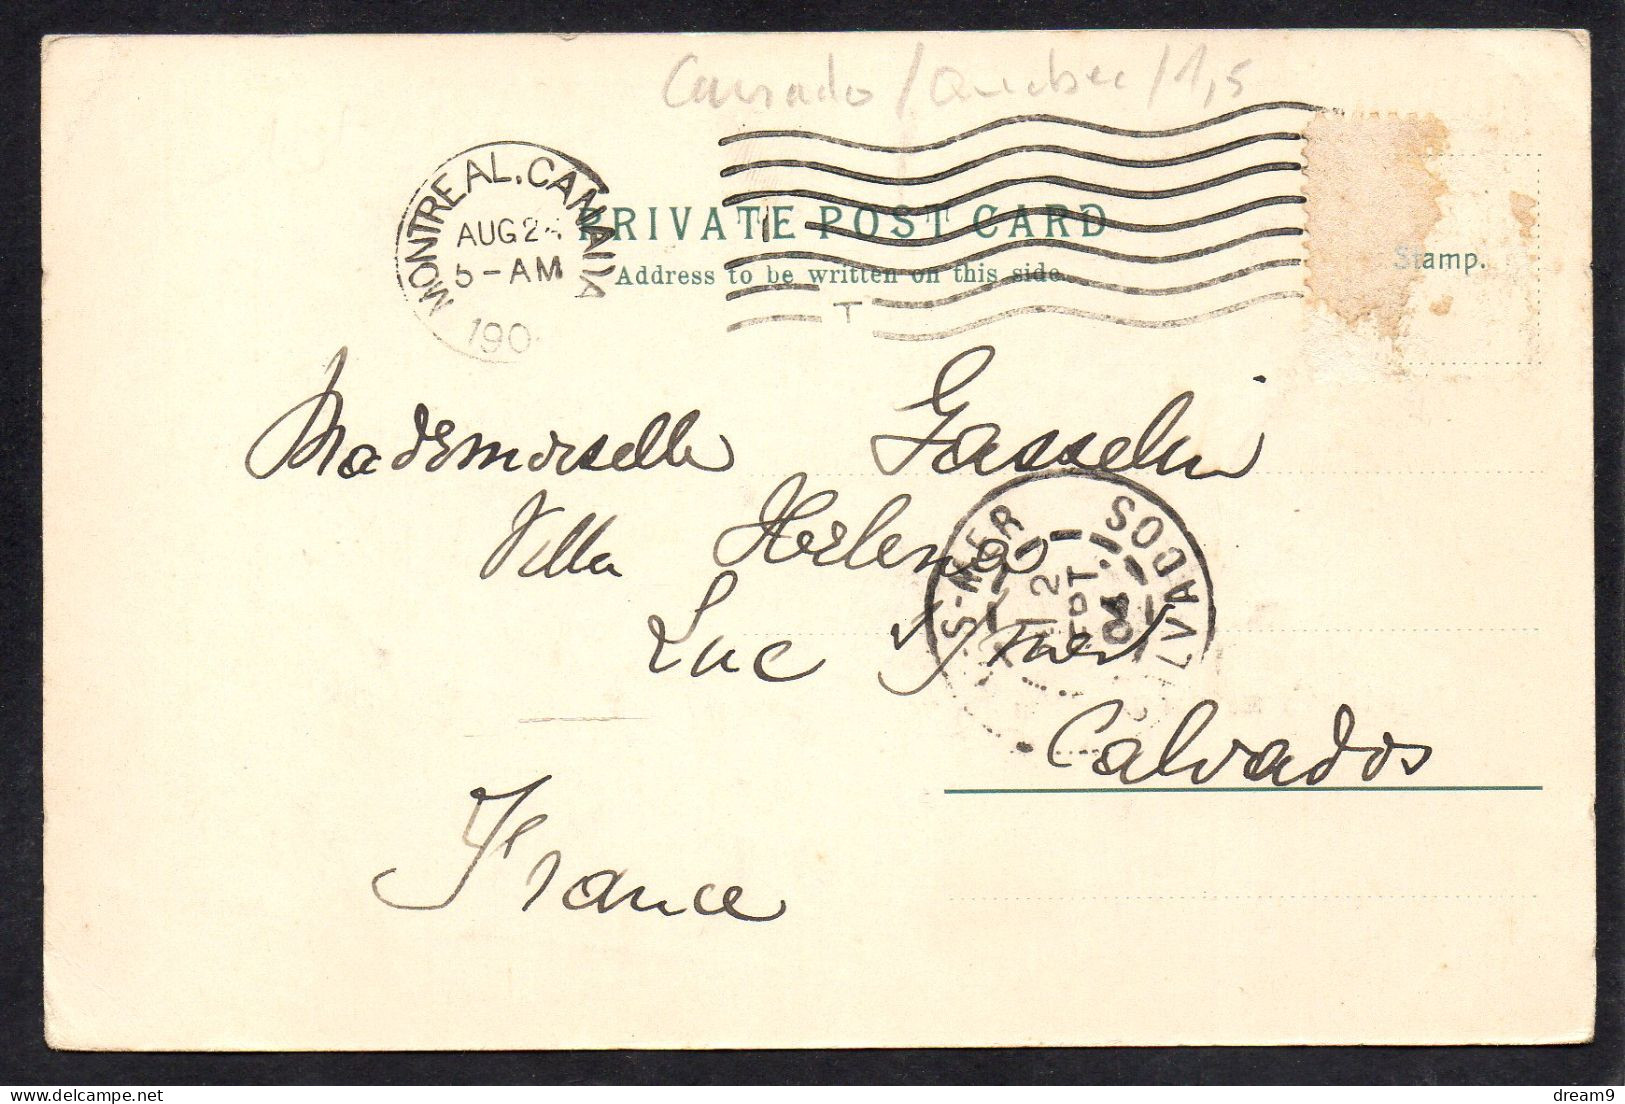 Canada / Quebec / 1,5
MONTREAL, CANADA
AUG 24
5-AM
190
PRIVATE POST CARD
Address to be written on this side.
Stamp.
T
Mademoiselle Gasselin
Villa Helena
Luc s/ mer
Calvados
France
S-MER
CALVADOS
2
SEPT
04
delcampe.net
dream9